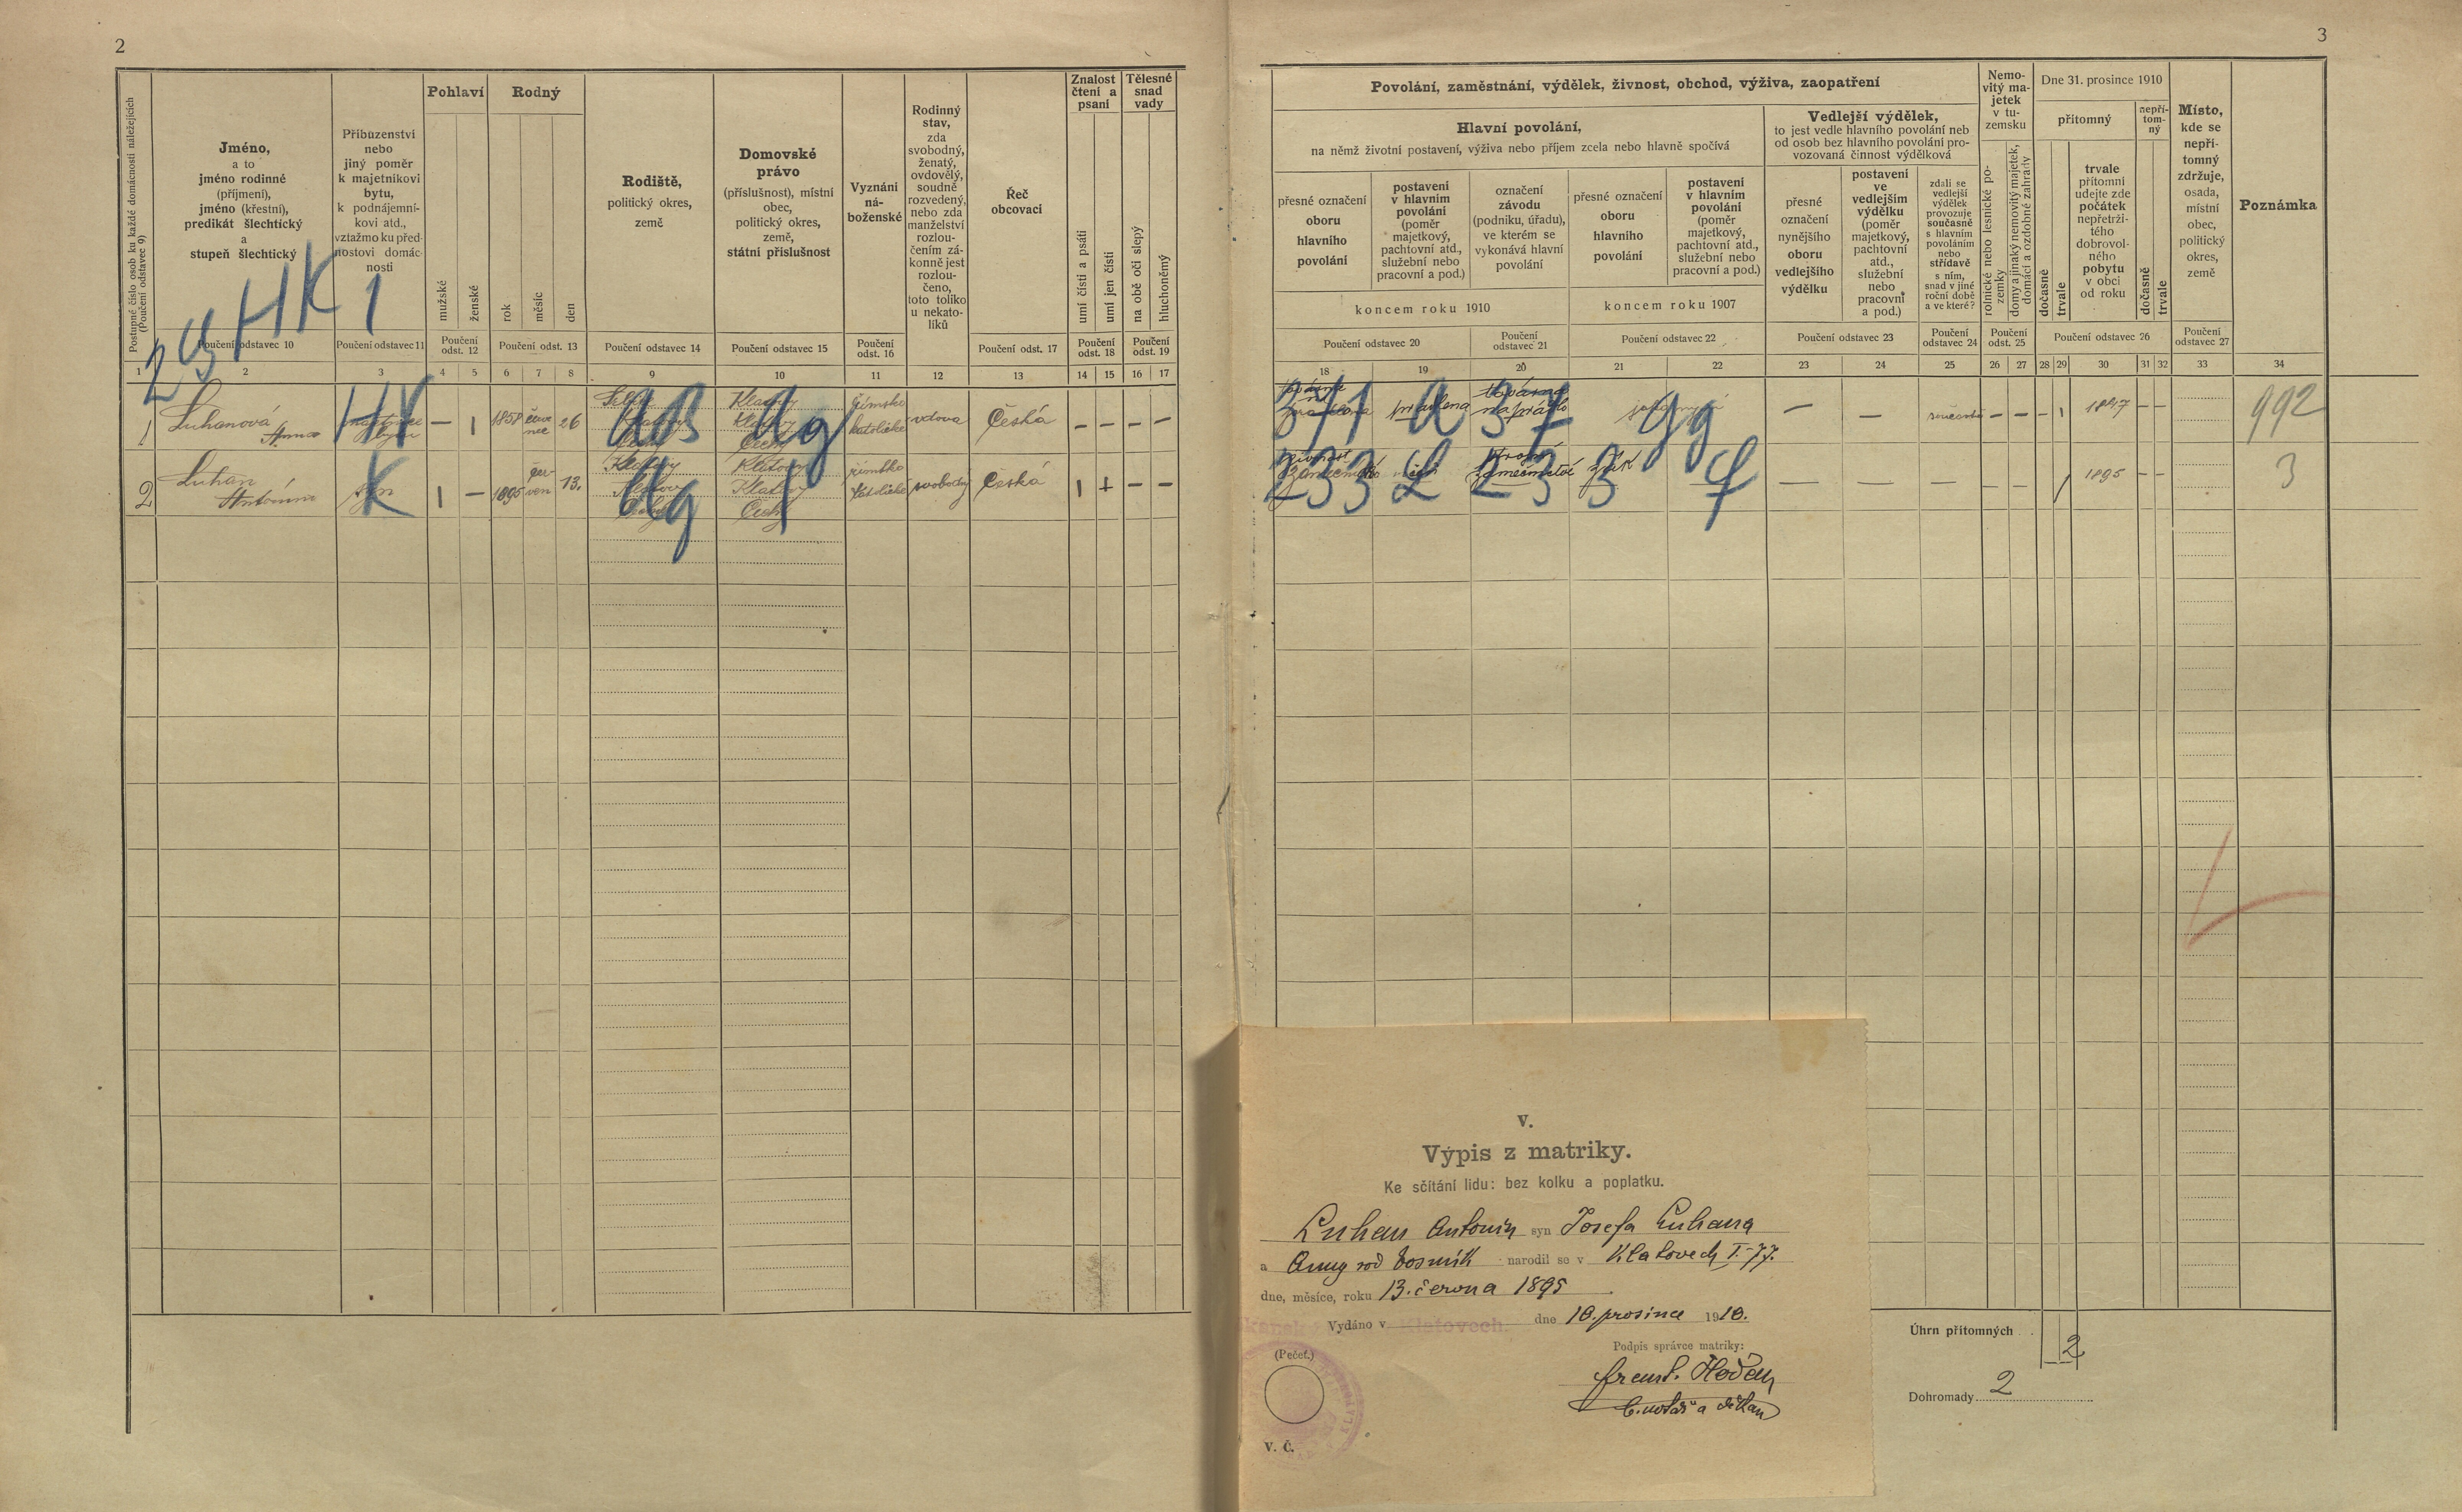 2
3
Postupné číslo osob ku každé domácnosti náležejících
(Poučení odstavec 9)
Jméno,
a to
jméno rodinné
(příjmení),
jméno (křestní),
predikát šlechtický
a
stupeň šlechtický
Příbuzenství
nebo
jiný poměr
k majetníkovi
bytu,
k podnájemní-
kovi atd.,
vztažmo ku před-
nostovi domác-
nosti
Pohlaví
mužské
ženské
Rodný
rok
měsíc
den
Rodiště,
politický okres,
země
Domovské
právo
(příslušnost), místní
obec,
politický okres,
země,
státní příslušnost
Vyznání
ná-
boženské
Rodinný
stav,
zda
svobodný,
ženatý,
ovdovělý,
soudně
rozvedený,
nebo zda
manželství
rozlou-
čením zá-
konně jest
rozlou-
čeno,
toto toliko
u nekato-
líků
Řeč
obcovací
Znalost
čtení a
psaní
umí čísti a psáti
umí jen čísti
Tělesné
snad
vady
na obě oči slepý
hluchoněmý
Poučení odstavec 10
Poučení odstavec 11
Poučení
odst. 12
Poučení odst. 13
Poučení odstavec 14
Poučení odstavec 15
Poučení
odst. 16
Poučení odst. 17
Poučení
odst. 18
Poučení
odst. 19
1 2 3 4 5 6 7 8 9 10 11 12 13 14 15 16 17
HK 1
1 Luhanová
Anna
HV
— 1 1858 červe
nec 26
Klatovy
Klatovy
Čechy
římsko
katolické
vdova
Česká
— — — —
2 Luhan
Antonín
syn
K
1 — 1895 čer-
ven 13.
Klatovy
Klatovy
Čechy
Klatovy
Klatovy
Čechy
římsko
katolické
svobodný
Česká
1 + — —
Povolání, zaměstnání, výdělek, živnost, obchod, výživa, zaopatření
Hlavní povolání,
na němž životní postavení, výživa nebo příjem zcela nebo hlavně spočívá
přesné označení
oboru
hlavního
povolání
postavení
v hlavním
povolání
(poměr
majetkový,
pachtovní atd.,
služební nebo
pracovní a pod.)
označení
závodu
(podniku, úřadu),
ve kterém se
vykonává hlavní
povolání
koncem roku 1910
přesné označení
oboru
hlavního
povolání
postavení
v hlavním
povolání
(poměr
majetkový,
pachtovní atd.,
služební nebo
pracovní a pod.)
koncem roku 1907
Vedlejší výdělek,
to jest vedle hlavního povolání neb
od osob bez hlavního povolání pro-
vozovaná činnost výdělková
přesné
označení
nynějšího
oboru
vedlejšího
výdělku
postavení
ve
vedlejším
výdělku
(poměr
majetkový,
pachtovní
atd.,
služební
nebo
pracovní
a pod.)
zdali se
vedlejší
výdělek
provozuje
současně
s hlavním
povoláním
nebo
střídavě
s ním,
snad v jiné
roční době
a ve které?
Nemo-
vitý ma-
jetek
v tu-
zemsku
rolnické nebo lesnické po-
zemky
domy a jinaký nemovitý majetek,
domácí a ozdobné zahrady
Dne 31. prosince 1910
přítomný
dočasně
trvale
trvale
přítomní
udejte zde
počátek
nepřetrži-
tého
dobrovol-
ného
pobytu
v obci
od roku
nepří-
tom-
ný
dočasně
trvale
Místo,
kde se
nepří-
tomný
zdržuje,
osada,
místní
obec,
politický
okres,
země
Poznámka
Poučení odstavec 20
Poučení
odstavec 21
Poučení odstavec 22
Poučení odstavec 23
Poučení
odstavec 24
Poučení
odst. 25
Poučení odstavec 26
Poučení
odstavec 27
18 19 20 21 22 23 24 25 26 27 28 29 30 31 32 33 34
371 a 37 gg
pradlena
— — současně — — — 1 1897 — —
992
233 L 233 f
žák
— — — — — 1895 — —
3
V.
Výpis z matriky.
Ke sčítání lidu: bez kolku a poplatku.
Luhan Antonín syn Josefa Luhana
a Anny rod Tosnik narodil se v Klatovech I-77.
dne, měsíce, roku 13. června 1895
Vydáno v Klatovech. dne 18. prosince 1910.
(Pečeť.)
Podpis správce matriky:
V. Č.
Úhrn přítomných 2
Dohromady 2